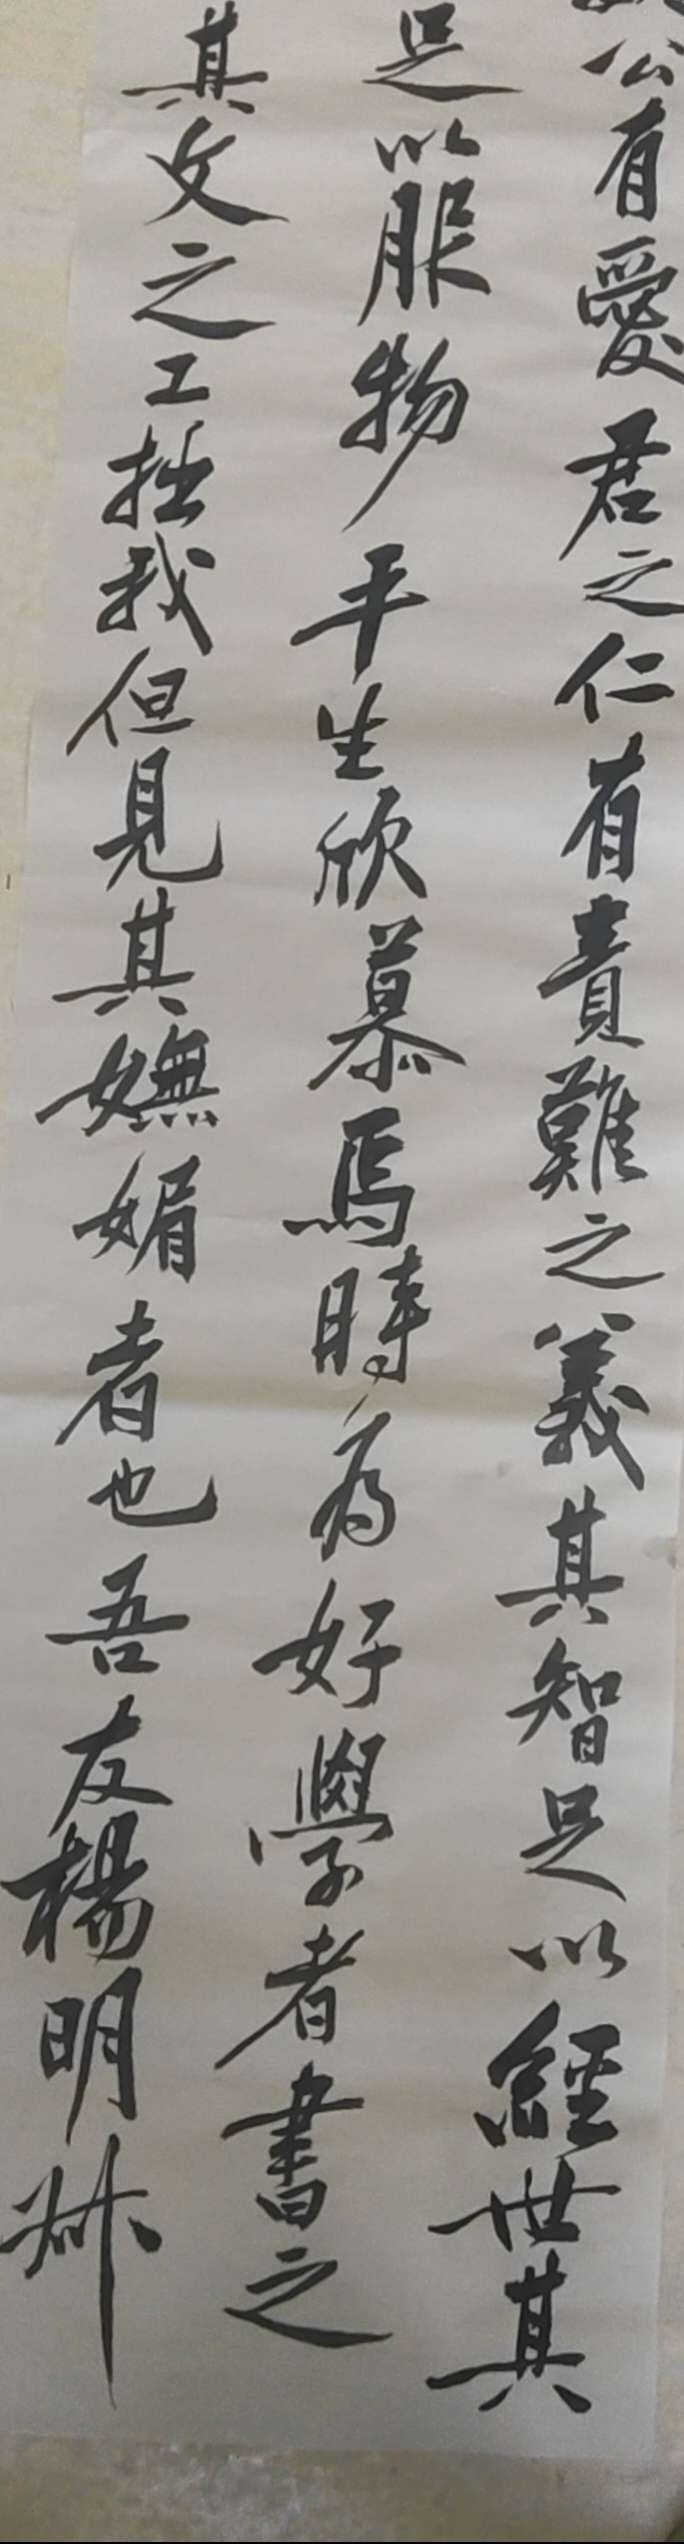 公有愛君之仁有責難之義其智足以經世其
足以服物平生欣慕焉時為好學者書之
其文之工拙我但見其嫵媚者也吾友楊明叔